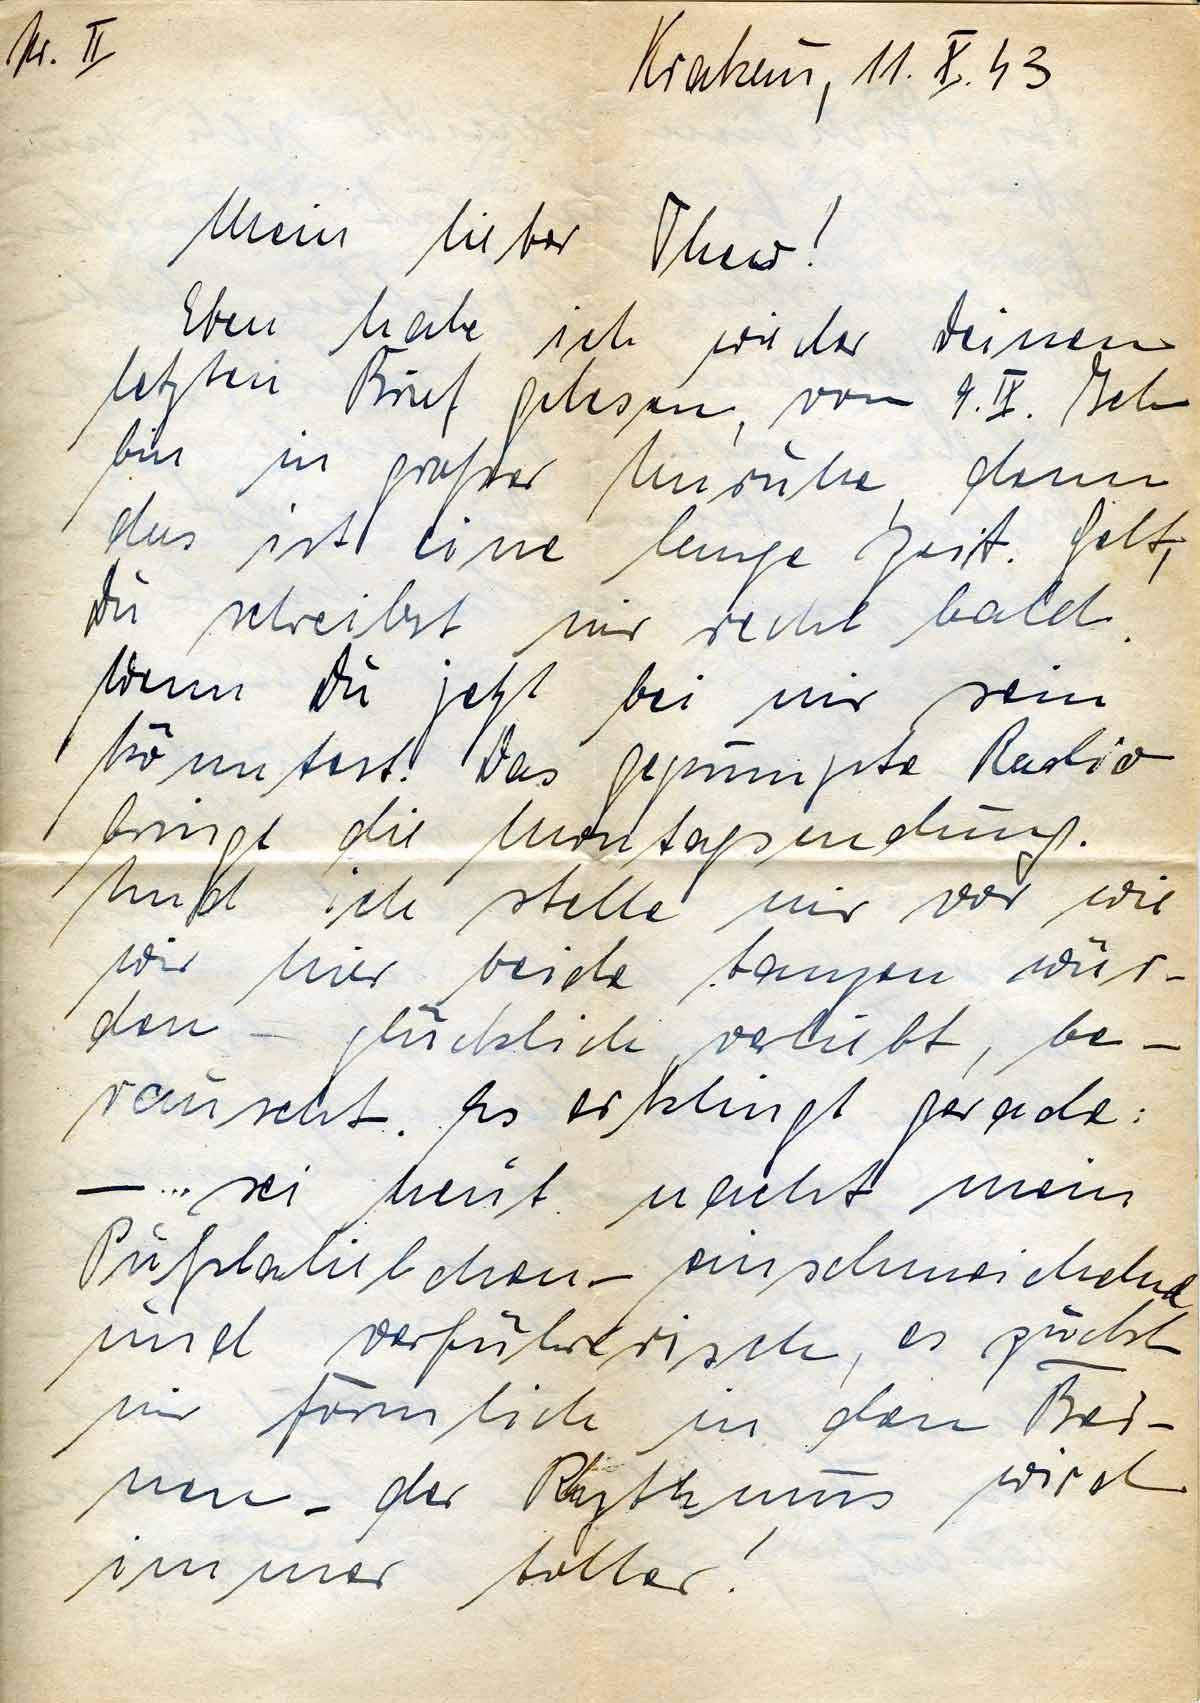 Nr. II
Krakau, 11. X. 43
Mein lieber Theo!
Eben habe ich wieder Deinen
letzten Brief gelesen, vom 9. IX. Ich
bin in großer Unruhe, denn
das ist eine lange Zeit. Gelt,
Du schreibst mir recht bald.
Wenn Du jetzt bei mir sein
könntest. Das gepumpte Radio
bringt die Montagsendung.
Und ich stelle mir vor wie
wir hier beide tanzen wür-
den – glücklich, verliebt, be-
rauscht. Es erklingt gerade:
– ... sei heut nacht mein
Pußtaliebchen – einschmeichelnd
und verführerisch, es zuckt
mir förmlich in den Bei-
nen – der Rhythmus wird
immer toller!